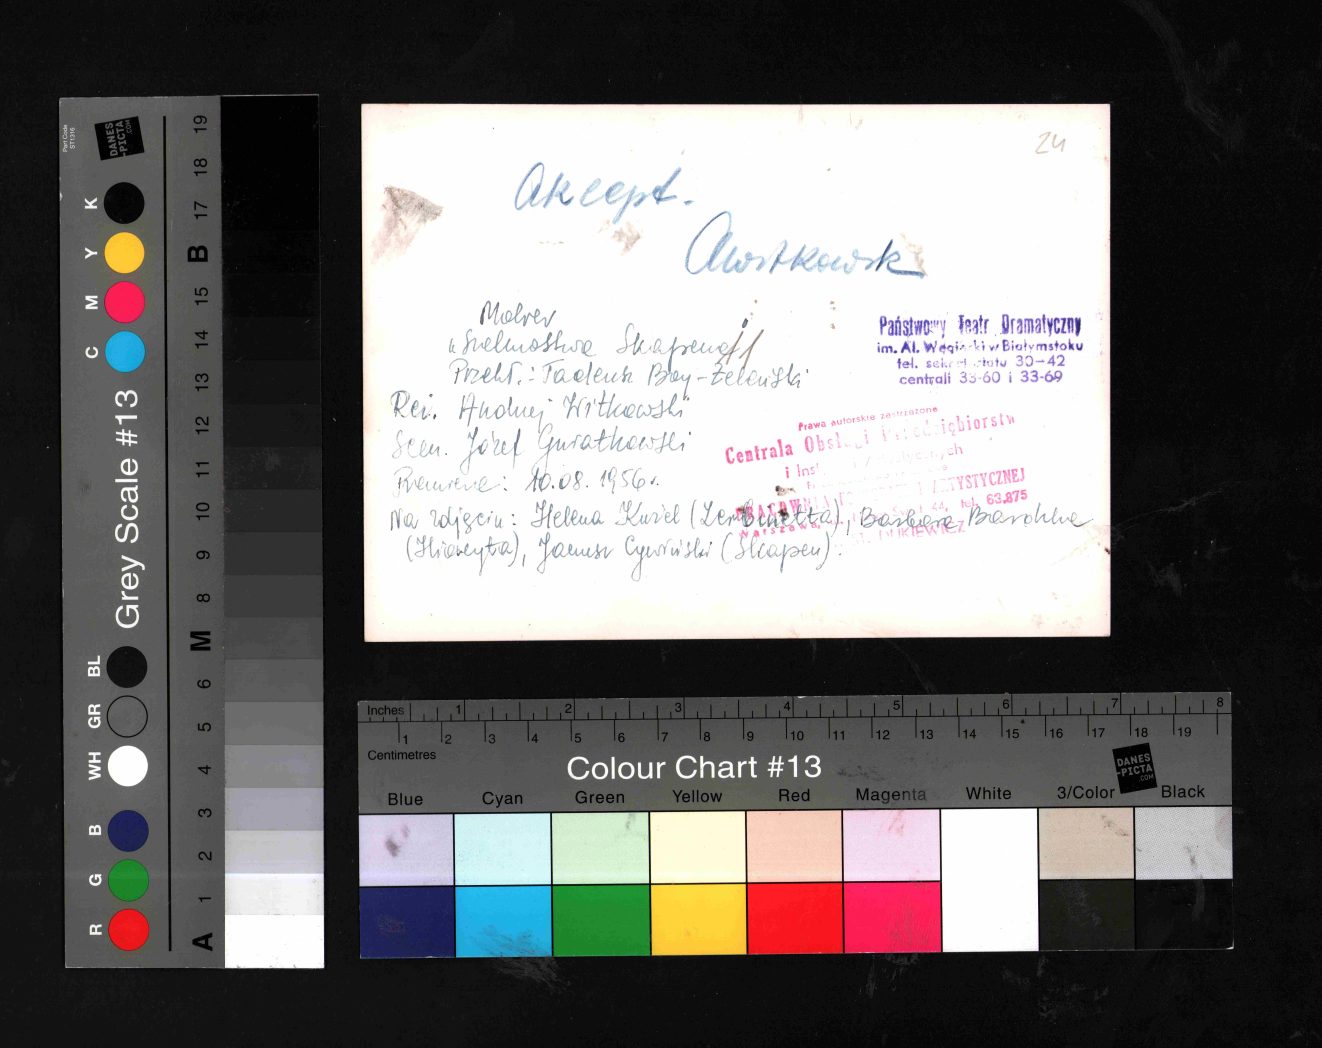 24
Akcept.
AWitkowsk
Molier
"Szelmostwa Skapena"
Przekł.: Tadeusz Boy-Żeleński
Reż. Andrzej Witkowski
Scen. Józef Guratkowski
Premiera: 10.08.1956r.
Na zdjęciu: Helena Kurzel (Zerbinetta), Barbara
(Hiacynta), Janusz Cywiński (Skapen)
Państwowy Teatr Dramatyczny
im. Al. Węgierki w Białymstoku
tel. sekretariatu 30-42
centrali 33-60 i 33-69
Prawa autorskie zastrzeżone
Centrala Obsługi Przedsiębiorstw
i Inst Artystycznych
PRACOWNIA I ARTYSTYCZNEJ
Warszawa, Świat 44, tel. 63.875
Part Code
ST1316
DANES
-PICTA
.COM
Grey Scale #13
K
Y
M
C
BL
GR
WH
B
G
R
19
18
17
B
15
14
13
12
11
10
9
8
M
6
5
4
3
2
1
A
Inches 1 2 3 4 5 6 7 8
1 2 3 4 5 6 7 8 9 10 11 12 13 14 15 16 17 18 19
Centimetres
Colour Chart #13
DANES
-PICTA
.COM
Blue Cyan Green Yellow Red Magenta White 3/Color Black